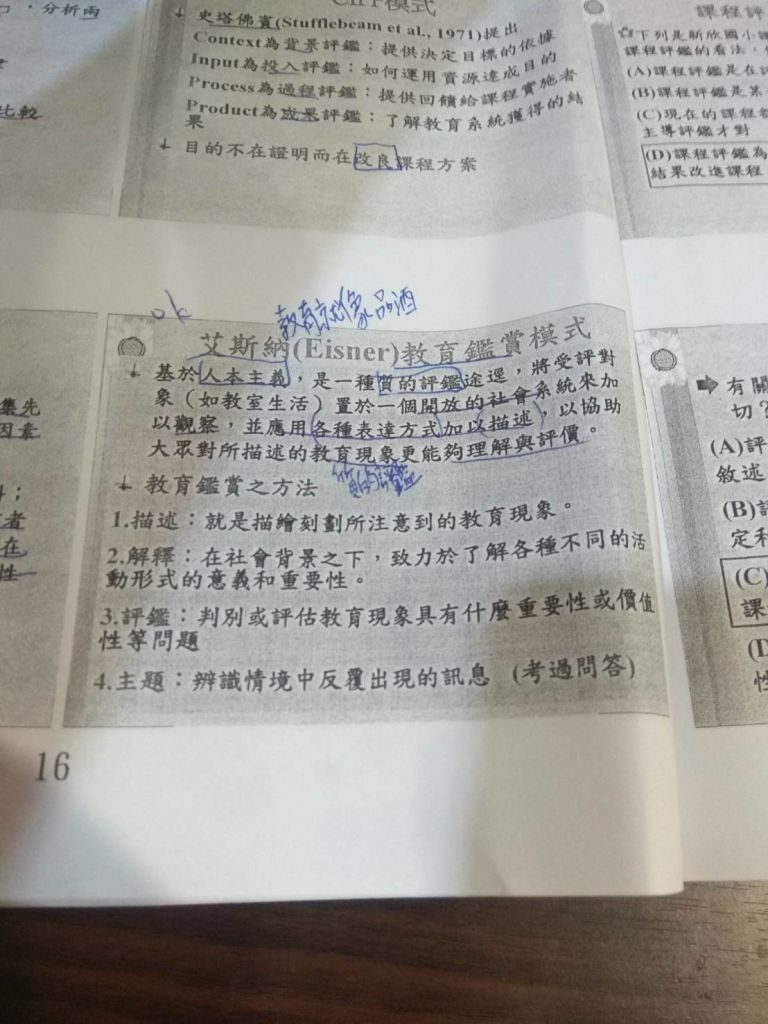 ，分析兩
比較
CIPP模式
史塔佛賓(Stufflebeam et al., 1971)提出
Context為背景評鑑：提供決定目標的依據
Input為投入評鑑：如何運用資源達成目的
Process為過程評鑑：提供回饋給課程實施者
Product為成果評鑑：了解教育系統獲得的結
果
目的不在證明而在改良課程方案
課程評
☆下列是新欣國小課
課程評鑑的看法，
(A)課程評鑑是在
(B)課程評鑑是某
(C)現在的課程
主導評鑑才對
(D)課程評鑑為
結果改進課程
集先
因素
；
者
在
性
ok
教育就像品酒
艾斯納(Eisner)教育鑑賞模式
基於人本主義，是一種質的評鑑途逕，將受評對
象（如教室生活）置於一個開放的社會系統來加
以觀察，並應用各種表達方式加以描述，以協助
大眾對所描述的教育現象更能夠理解與評價。
質的評鑑
教育鑑賞之方法
1.描述：就是描繪刻劃所注意到的教育現象。
2.解釋：在社會背景之下，致力於了解各種不同的活
動形式的意義和重要性。
3.評鑑：判別或評估教育現象具有什麼重要性或價值
性等問題
4.主題：辨識情境中反覆出現的訊息 (考過問答)
有關
切？
(A)評
敘述
(B)評
定和
(C)
課
(D
性
16